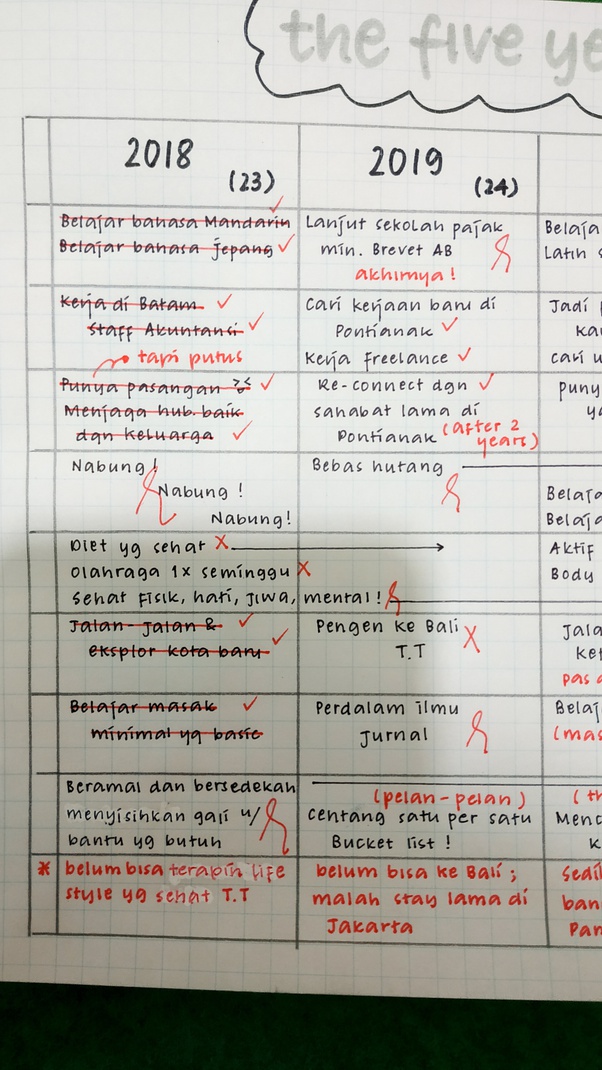 the five ye
2018
(23)
Belajar bahasa Mandarin
Belajar bahasa jepang
Kerja di Batam
Staff Akuntansi
tapi putus
Punya pasangan
Menjaga hub. baik
dgn keluarga
Nabung!
Nabung!
Nabung!
Diet yg sehat X
Olahraga 1x seminggu X
sehat fisik, hati, jiwa, mental!
Jalan-jalan &
eksplor kota baru
Belajar masak
minimal yg basic
Beramal dan bersedekah
menyisihkan gaji u/
bantu yg butuh
* belum bisa terapin life
style yg sehat T.T
2019
(24)
Lanjut sekolah pajak
min. Brevet AB
akhirnya!
Cari kerjaan baru di
Pontianak
Kerja freelance
Re-connect dgn
sahabat lama di
Pontianak (after 2
years)
Bebas hutang
Pengen ke Bali X
T.T
Perdalam ilmu
Jurnal
(pelan-pelan)
Centang satu per satu
Bucket list!
belum bisa ke Bali;
malah stay lama di
Jakarta
Belaja
Latin s
Jadi
ka
cari u
puny
ya
Belaja
Belaj
Aktif
Body
Jala
ket
pas a
Belaj
(mas
(th
Menc
k
Sedi
ban
Pan